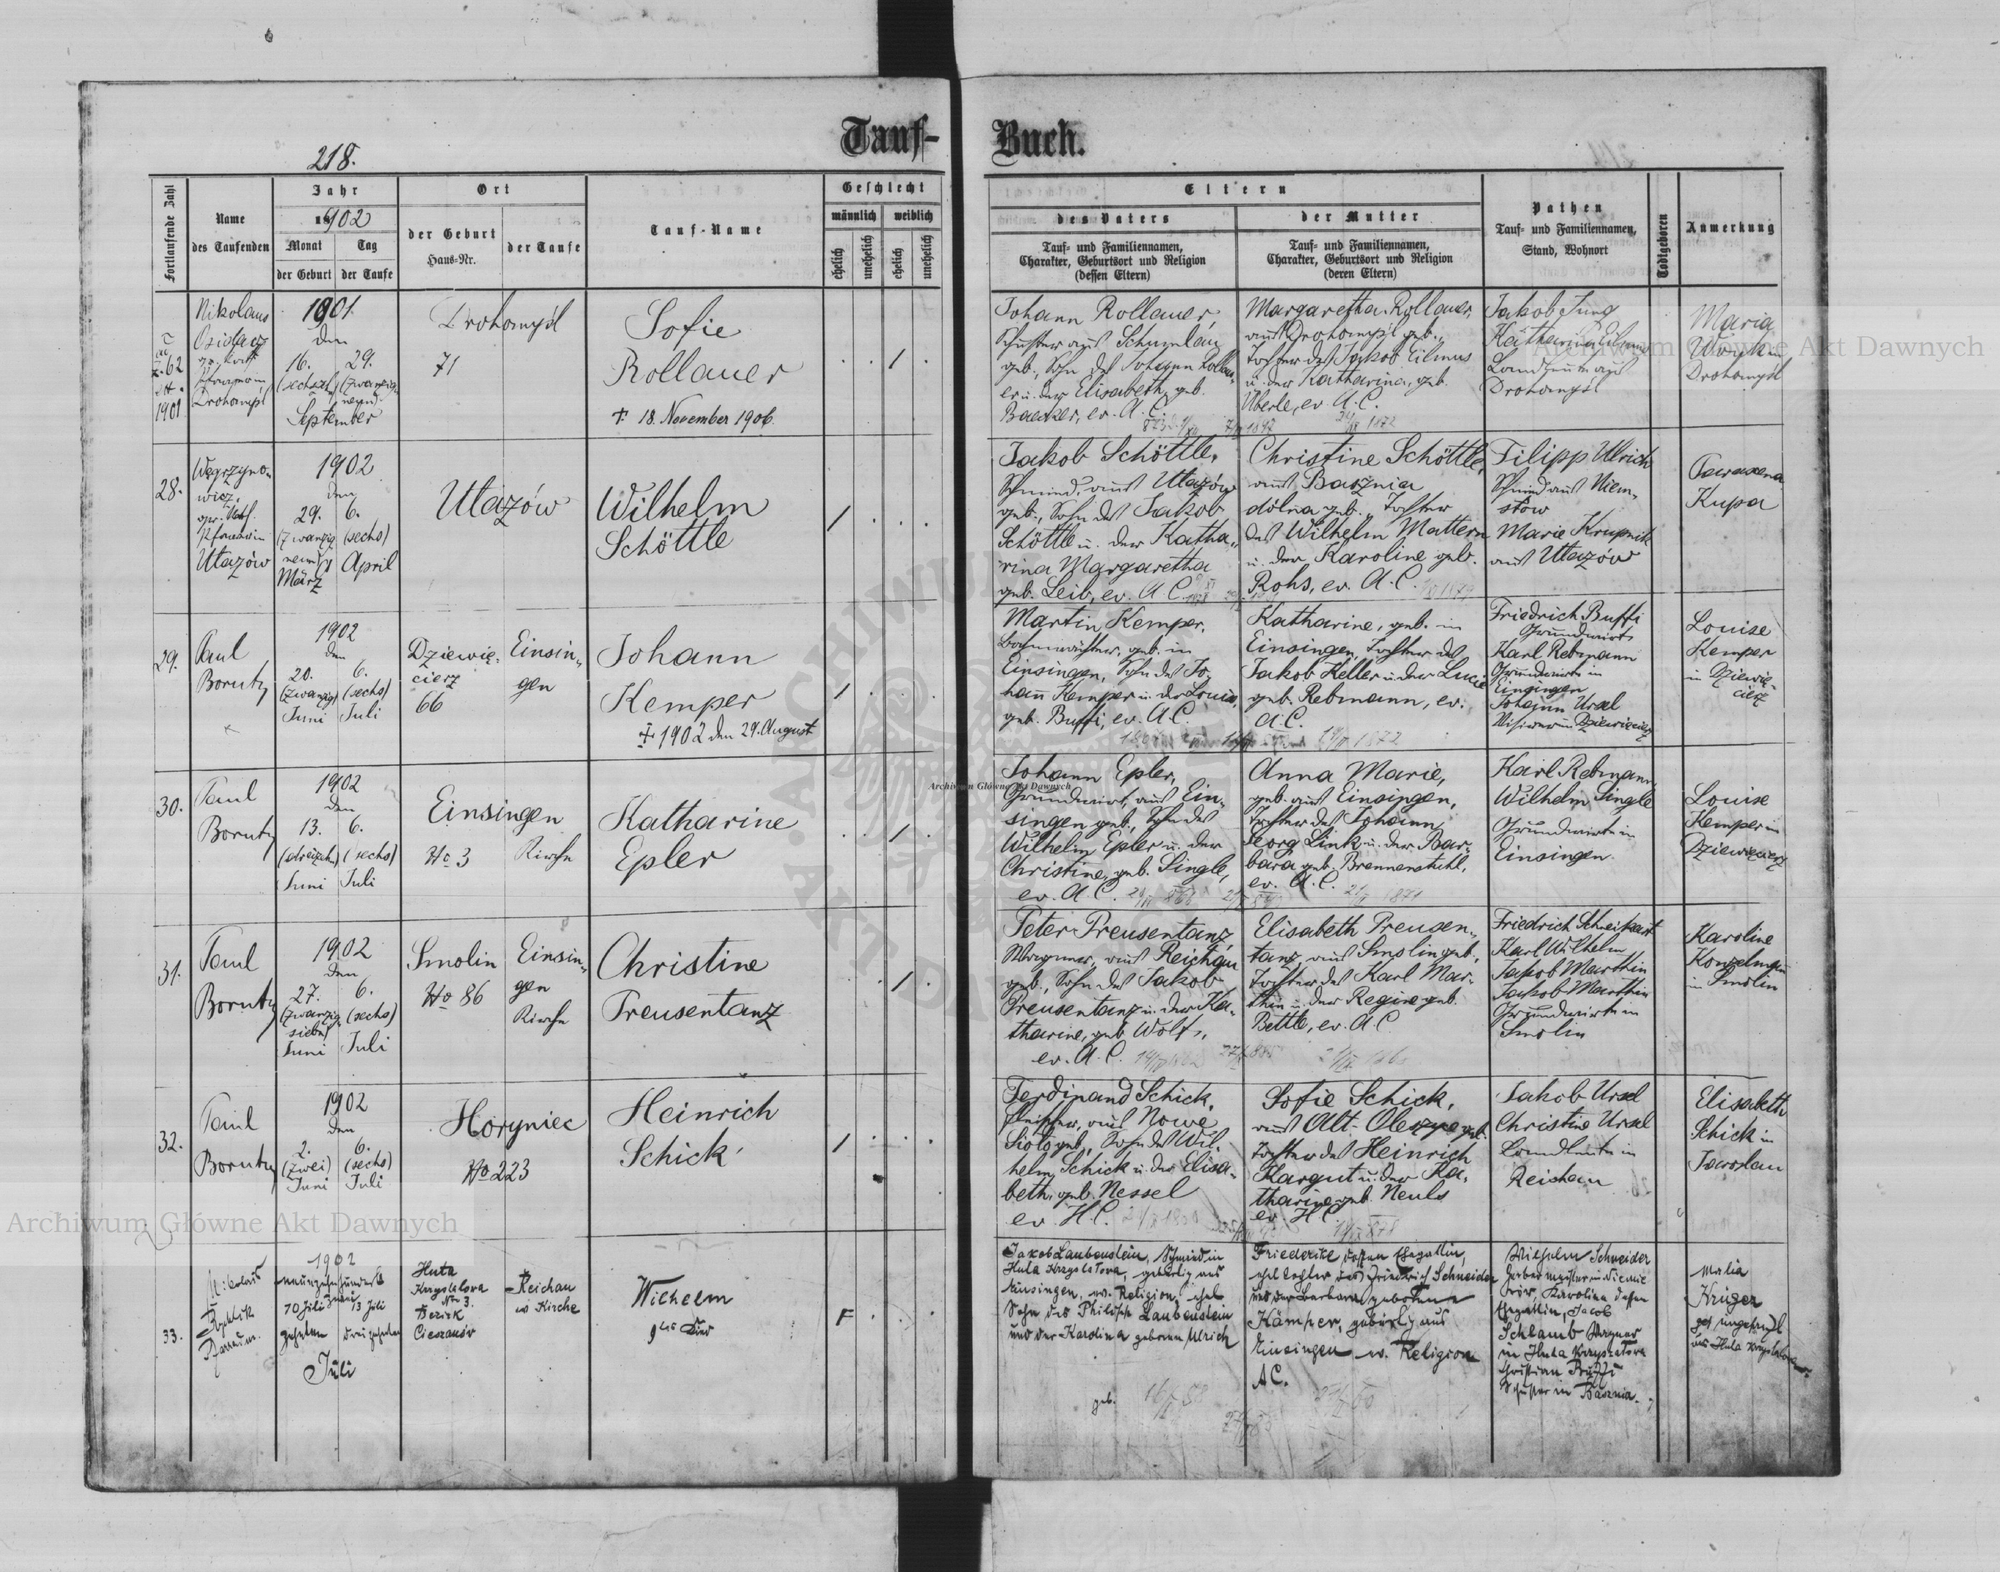 Tauf-
Buch.
218.
Fortlaufende Zahl
Name
des Taufenden
Jahr
1902
Monat
Tag
der Geburt
der Taufe
Ort
der Geburt
Haus-Nr.
der Taufe
Tauf-Name
Geschlecht
männlich
weiblich
ehelich
unehelich
ehelich
unehelich
Eltern
des Vaters
Tauf- und Familiennamen,
Charakter, Geburtsort und Religion
(dessen Eltern)
der Mutter
Tauf- und Familiennamen,
Charakter, Geburtsort und Religion
(deren Eltern)
Pathen
Tauf- und Familiennamen,
Stand, Wohnort
Todtgeboren
Anmerkung
62
1901
Nikolaus
Osidacz
Drohomyśl
1901
den
16. 29.
September
Drohomyśl
71
Sofie
Rollauer
+ 18. November 1906.
Johann Rollauer,
Schuster aus
geb., Sohn des Johann Rollau-
er u. der Elisabeth, geb.
Baecker, ev. A. C.
Margaretha Rollauer,
aus Drohomyśl geb.,
Tochter des Jakob Eilmes
u. der Katharina, geb.
Überle, ev. A. C.
Jakob Jung
Katharina
Landleute aus
Drohomyśl
Maria
in
Drohomyśl
28.
Węgrzyno-
wicz,
Pfarrer in
Ułazów
1902
den
29. 6.
(zwanzig (sechs)
neun)
März April
Ułazów
Wilhelm
Schöttle
Jakob Schöttle,
Schmied, aus Ułazów
geb., Sohn des Jakob
Schöttle u. der Katha-
rina Margaretha
geb. Leib, ev. A. C.
Christine Schöttle,
aus Basznia
dólna geb., Tochter
des Wilhelm Mattern
u. der Karoline geb.
Rohs, ev. A. C.
Filipp Ullrich
Schmied aus Niem-
stów
Marie Krupnik
aus Ułazów
Kupa
29.
Paul
Borutzy
1902
den
20. 6.
(zwanzig) (sechs)
Juni Juli
Dziewię-
cierz
66
Einsin-
gen
Johann
Kemper
+ 1902 den 29. August
Martin Kemper,
Bahnwächter, geb. in
Einsingen, Sohn des Jo-
hann Kemper u. der Louise,
geb. Buffi, ev. A. C.
Katharine, geb. in
Einsingen, Tochter des
Jakob Keller u. der Lucie
geb. Rebmann, ev.
A. C.
Friedrich Buffi
Grundwirt
Karl Rebmann
Grundwirt in
Einsingen
Johann Ursel
in Dziewięcierz
Louise
Kemper
in Dziewię-
cierz
30.
Paul
Borutzy
1902
den
13. 6.
(dreizehn) (sechs)
Juni Juli
Einsingen
No 3 Kirche
Katharine
Epler
Johann Epler,
Grundwirt, aus Ein-
singen geb., Sohn des
Wilhelm Epler u. der
Christine, geb. Single,
ev. A. C.
Anna Marie,
geb. aus Einsingen,
Tochter des Johann
Georg Link u. der Bar-
bara geb. Brennenstuhl,
ev. A. C.
Karl Rebmann,
Wilhelm Single
Grundwirte in
Einsingen.
Louise
Kemper in
Dziewięcierz
31.
Paul
Borutzy
1902
den
27. 6.
(zwanzig (sechs)
sieben)
Juni Juli
Smolin
No 86
Einsin-
gen
Kirche
Christine
Preusentanz
Peter Preusentanz,
Wagner, aus Reichau
geb., Sohn des Jakob
Preusentanz u. der Ka-
tharine, geb. Wolf,
ev. A. C.
Elisabeth Preusen-
tanz, aus Smolin geb.,
Tochter des Karl Mar-
thin u. der Regine geb.
Bettle, ev. A. C.
Friedrich Scheikart
Karl Wilhelm
Jakob Marthin
Jakob Marthin
Grundwirte in
Smolin
Karoline
Konzelmann
in Smolin
32.
Paul
Borutzy
1902
den
2. 6.
(zwei) (sechs)
Juni Juli
Horyniec
No 223
Heinrich
Schick
Ferdinand Schick,
Fleischer, aus Nowe
Sioło geb., Sohn des Wil-
helm Schick u. der Elisa-
beth, geb. Nessel
ev. H. C.
Sofie Schick,
aus Alt-Oleszyce geb.
Tochter des Heinrich
Kargut u. der Ka-
tharine geb. Neuls
ev. H. C.
Jakob Ursel
Christine Ursel
Landleute in
Reichau
Elisabeth
Schick in
Jaroslau
33.
Nikolaus
1902
neunzehnhundert
zwei
10 Juli 13 Juli
zehnten dreizehnten
Juli
Huta
Kryształowa
No 3.
Bezirk
Cieszanów
Reichau
in Kirche
Wilhelm
Jakob Laubenstein, Schmied in
Huta Kryształowa, gebürtig aus
Einsingen, ev. Religion, ehel.
Sohn des Philipp Laubenstein
und der Karolina geboren Ulrich
geb.
Friederike dessen Ehegattin,
ehel. Tochter des Friedrich Schneider
und der Barbara geborene
Kämper, gebürtig aus
Einsingen ev. Religion
A C.
Wilhelm Schneider
Karolina dessen
Ehegattin, Jacob
Schlamb Wagner
in Huta Kryształowa
Christian Buffi
Schuster in Basznia.
Malia
Krüger
aus Huta Kryształowa
Archiwum Główne Akt Dawnych
Archiwum Główne Akt Dawnych
Archiwum Główne Akt Dawnych